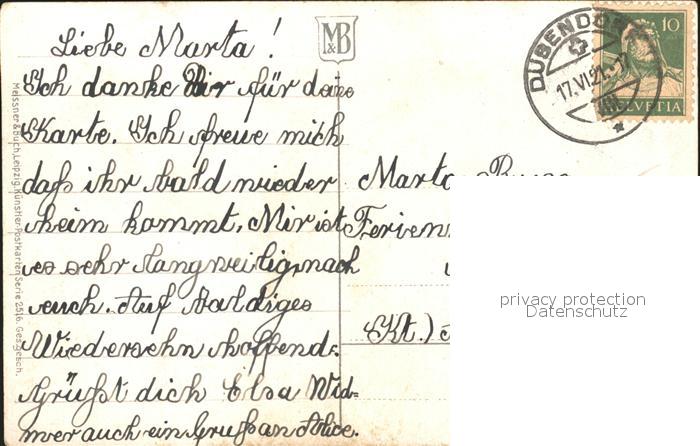 Liebe Marta!
Ich danke Dir für deine
Karte. Ich freue mich
daß ihr bald wieder
heim kommt. Mir ist
es sehr langweilig nach
euch. Auf baldiges
Wiedersehn hoffend
Grüßt dich Elsa Wid=
mer auch ein Gruß an Alice.
M&B
DÜBENDORF
17.VI.21.-17
10
HELVETIA
Marta
Ferien
Kt.)
Meissner & Buch, Leipzig. Künstler-Postkarten Serie 2516. Ges. gesch.
privacy protection
Datenschutz